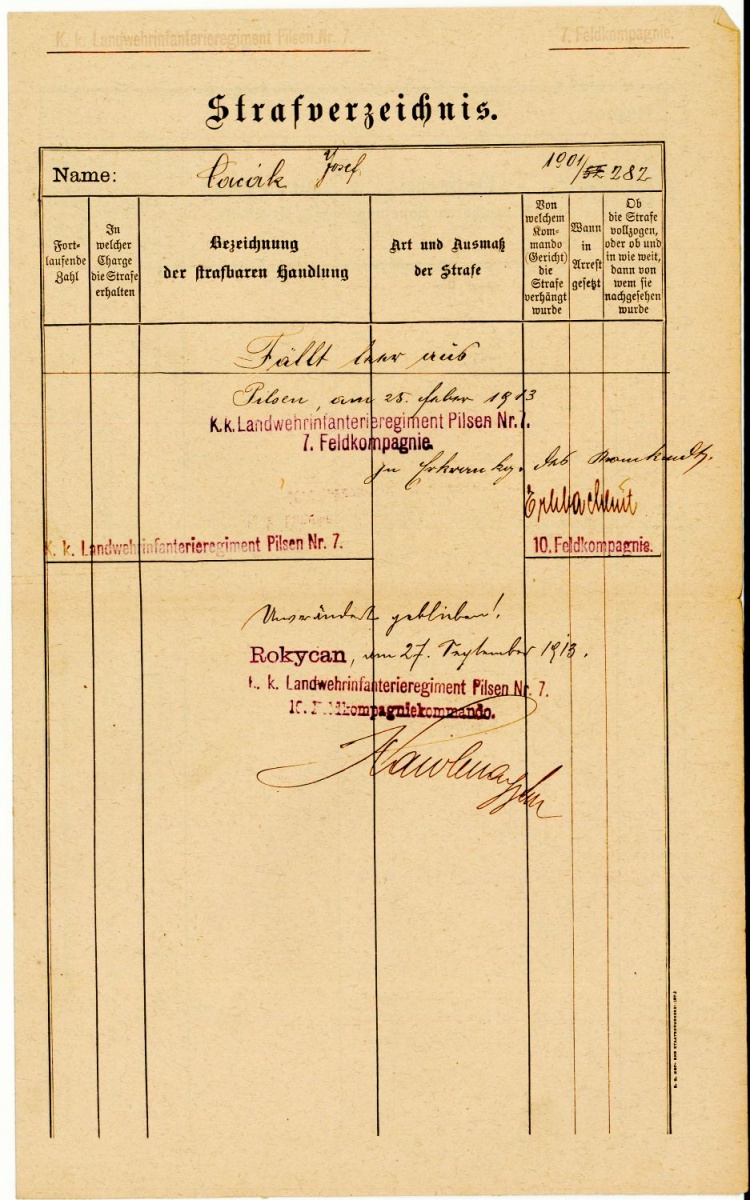 K. k. Landwehrinfanterieregiment Pilsen Nr. 7. 7. Feldkompagnie.
Strafverzeichnis.
Name: Josef 1901/ 282
Fort-
laufende
Zahl
In
welcher
Charge
die Strafe
erhalten
Bezeichnung
der strafbaren Handlung
Art und Ausmaß
der Strafe
Von
welchem
Kom-
mando
(Gericht)
die
Strafe
verhängt
wurde
Wann
in
Arrest
gesetzt
Ob
die Strafe
vollzogen,
oder ob und
in wie weit,
dann von
wem sie
nachgesehen
wurde
Fällt leer aus
Pilsen, am 25. feber 1913
K. k. Landwehrinfanterieregiment Pilsen Nr. 7.
7. Feldkompagnie.
in des
K. k. Landwehrinfanterieregiment Pilsen Nr. 7. 10. Feldkompagnie.
Unverändert geblieben!
Rokycan, am 27. September 1913.
k. k. Landwehrinfanterieregiment Pilsen Nr. 7.
10. Feldkompagniekommando.